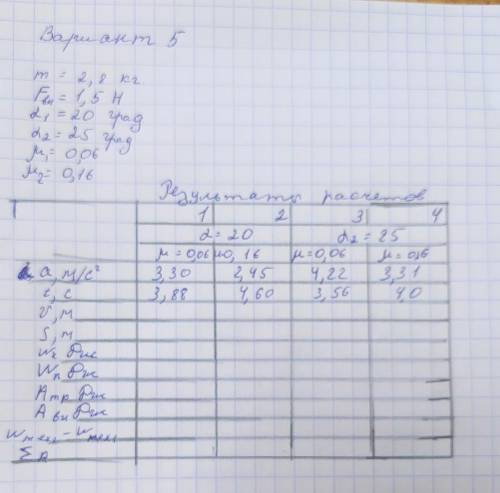 Вариант 5
m = 2,8 кг
Fвн = 1,5 Н
α1 = 20 град
α2 = 25 град
μ1 = 0,06
μ2 = 0,16
Результаты расчетов
1 2 3 4
α = 20 α2 = 25
μ = 0,06 μ0,16 μ=0,06 μ = 0,16
a, м/с² 3,30 2,45 4,22 3,31
t, с 3,88 4,60 3,56 4,0
v, м
S, м
Wк Дж
Wп Дж
Aтр Дж
Aвн Дж
Wмех - Wмех
Σ A